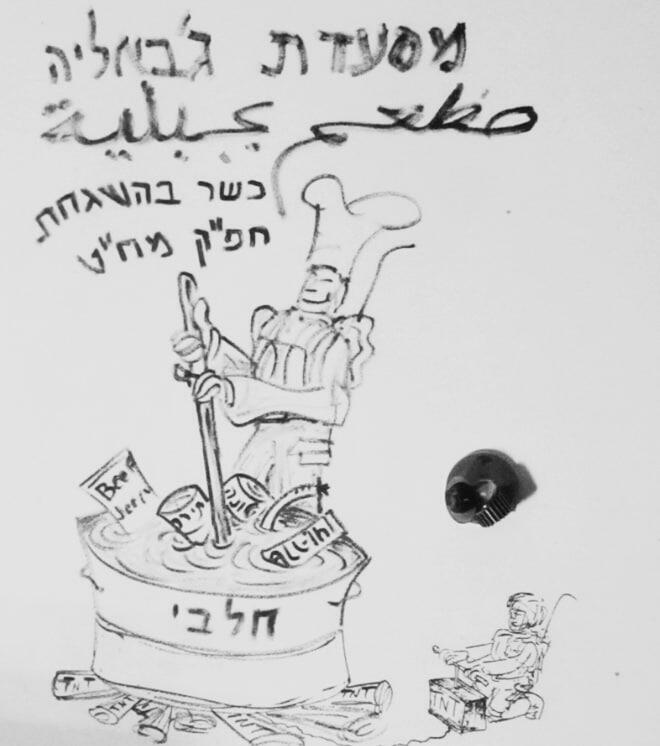 מסעדת ג'באליה
مطعم جبلية
כשר בהשגחת
חפ"ק מח"ט
Beef
Jerky
תירס
חלבי
TNT
TNT
TNT
TNT